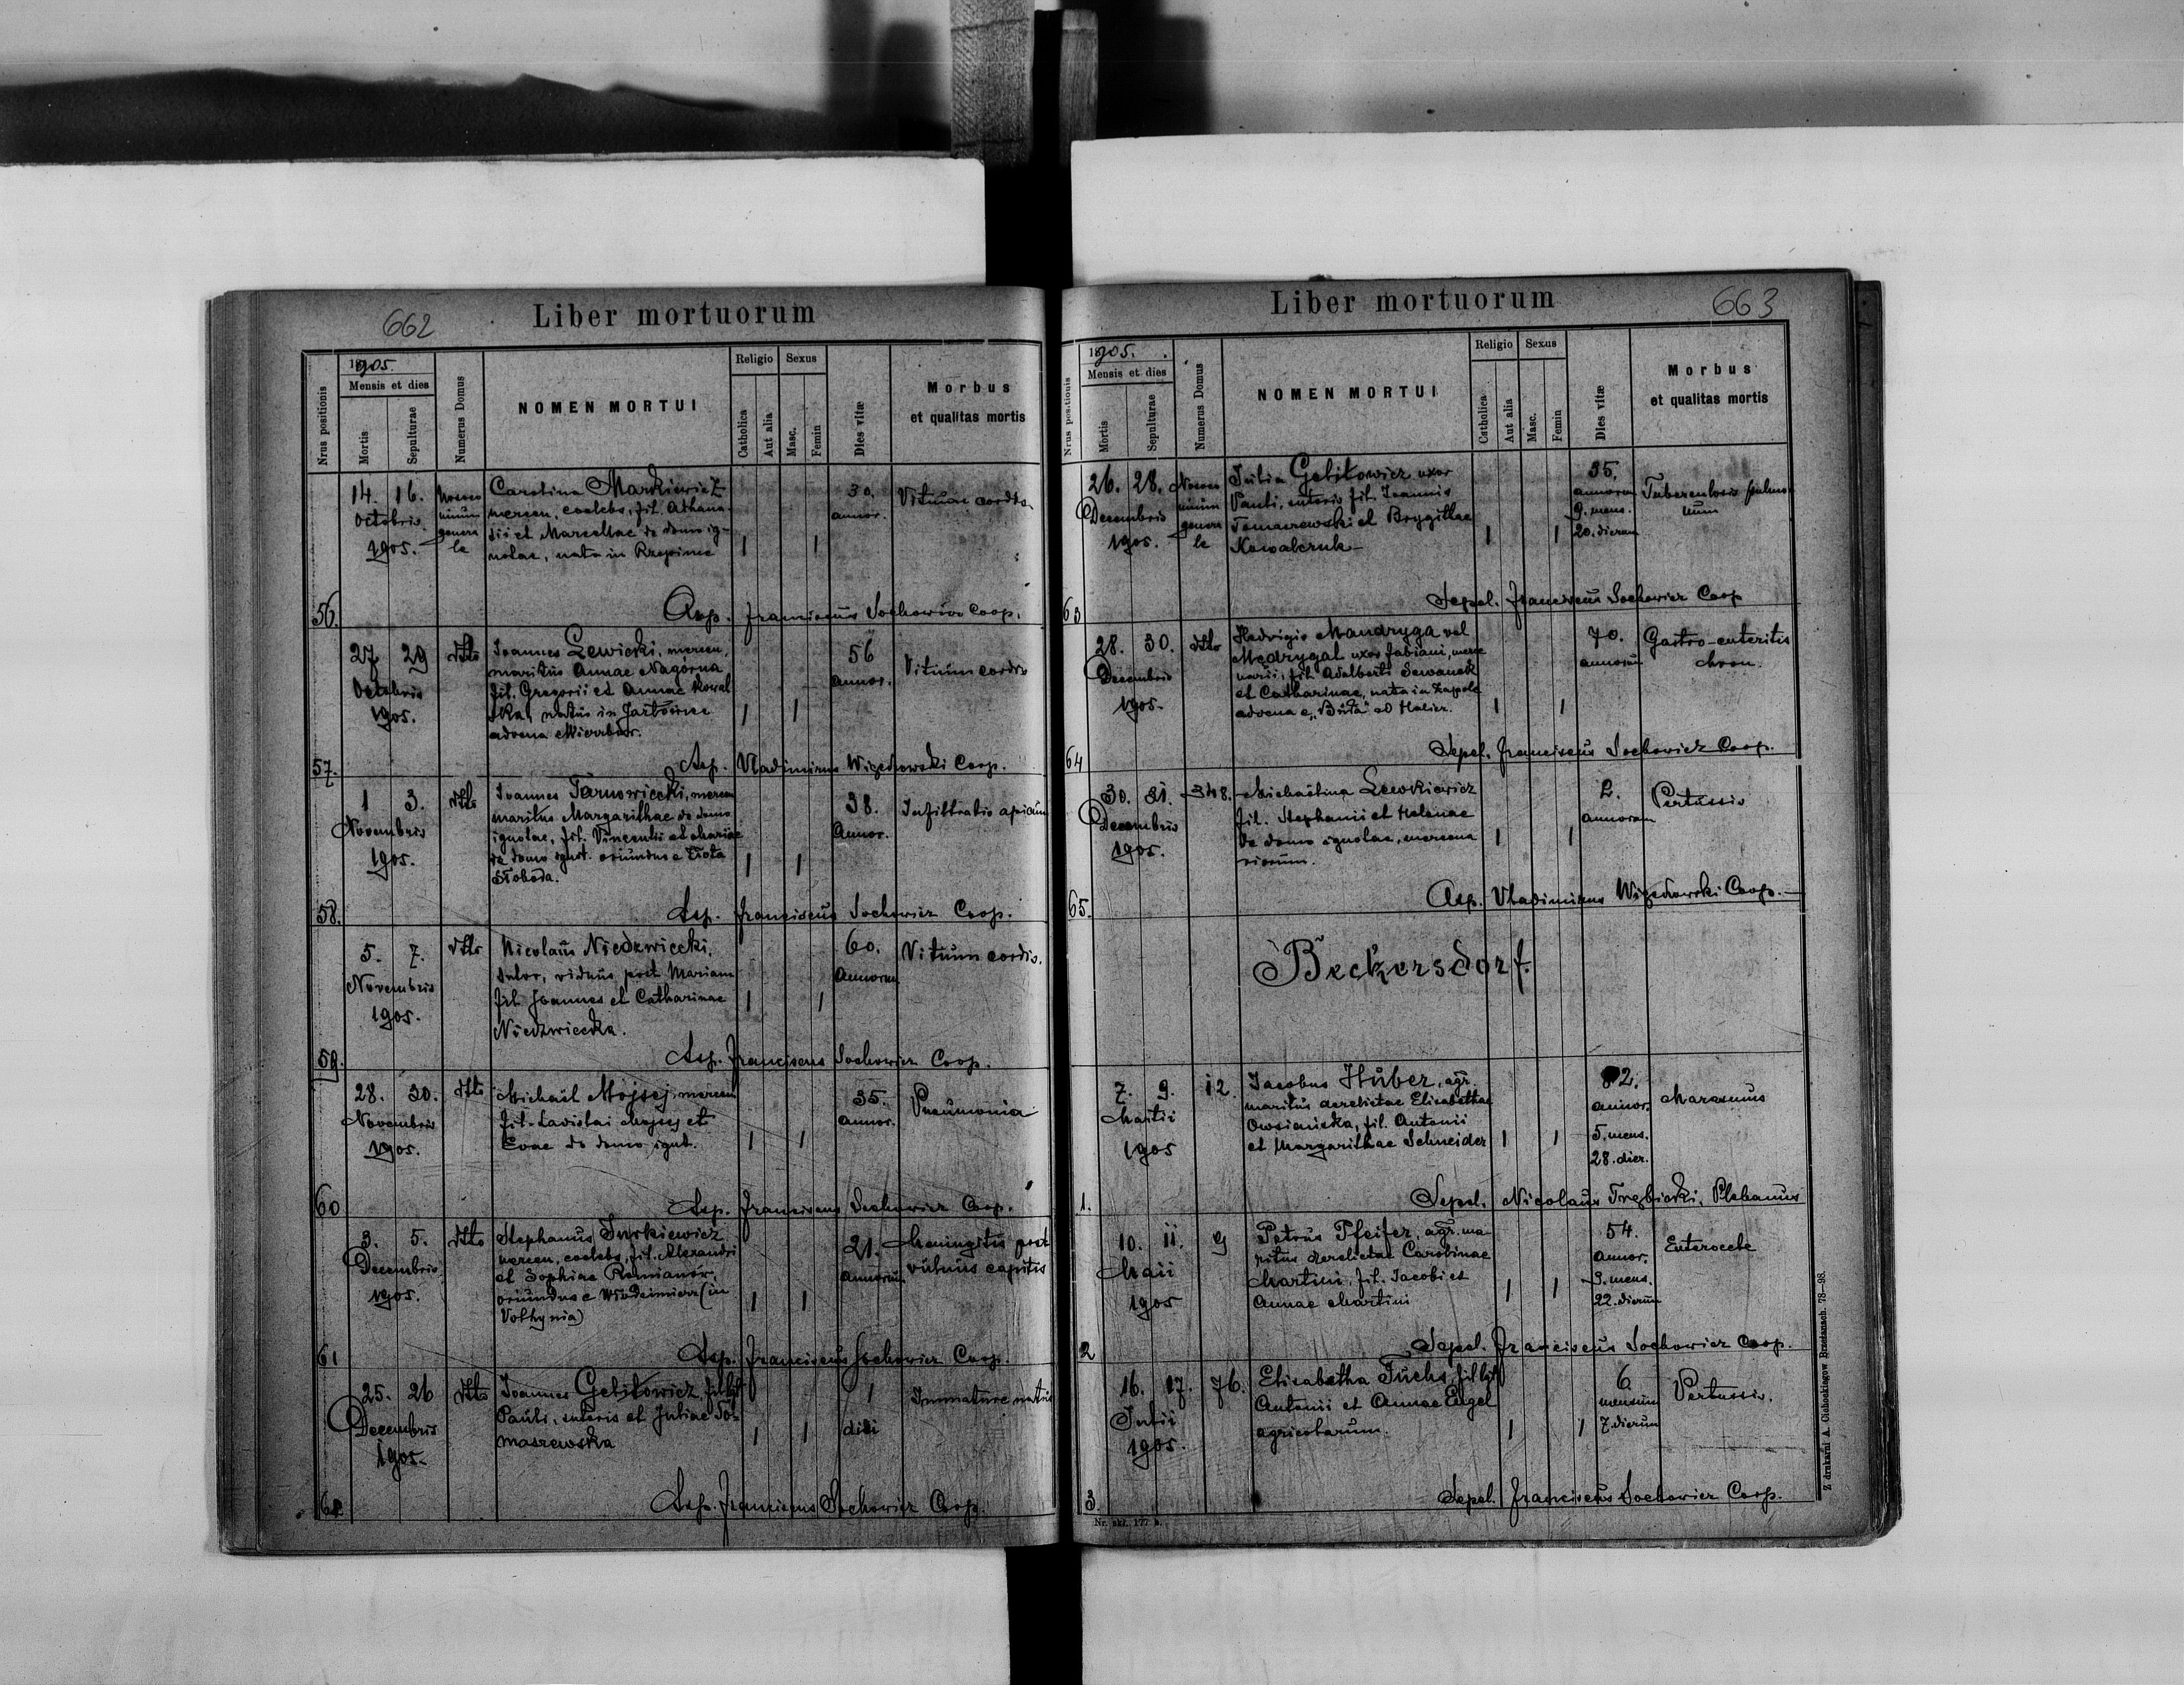 662
Liber mortuorum
Nrus positionis
1905.
Mensis et dies
Mortis
Sepulturae
Numerus Domus
NOMEN MORTUI
Religio
Catholica
Aut alia
Sexus
Masc.
Femin
Dies vitæ
Morbus
et qualitas mortis
56.
14. 16.
Octobris
1905.
Nosoco
mium
genera
le
Carolina Markiewicz
mercen, coelebs, fil. Athana-
sii et Marcellae de domo ig-
notae, nata in
30.
annor.
Vitium cordis
Asp. Franciscus Sochowicz Coop.
57.
27 29
Octobris
1905.
dtto
Joannes Lewicki, mercen,
maritus Annae Nagórna
fil. Gregorii et Annae Kowal
ska, natus in
advena
56
annor.
Vitium cordis
Asp. Vladimirus Coop.
58.
1 3.
Novembris
1905.
dtto
Joannes Tarnowiecki, mercen
maritus Margarithae de domo
ignotae, fil. Vincentii et Mariae
de domo ignot. oriundus e Złota
Słoboda.
38.
Annor.
Infiltratio apicum
Asp. Franciscus Sochowicz Coop.
59.
5. 7.
Novembris
1905.
dtto
Nicolaus Niedzwiecki,
sutor, viduus post Mariam
fil. Joannes et Catharinae
Niedzwiecka.
60.
Annorum
Vitium cordis.
Asp. Franciscus Sochowicz Coop.
60
28. 30.
Novembris
1905.
dtto
Michaël Mojsej, mercen
fil. Ladislai Mojsej et
Evae de domo ignot.
35.
Annor.
Pneumonia
Asp. Franciscus Sochowicz Coop.
61
3. 5.
Decembris
1905.
dtto
Stephanus
mercen, coelebs, fil. Alexandri
et Sophiae
oriundus e (in
Volhynia)
21.
annorum
Meningitis post
vulnus capitis
Asp. Franciscus Sochowicz Coop.
62
25. 26
Decembris
1905.
dtto
Joannes Gebitowicz, fil. lgt
Pauli, sutoris et Juliae To-
maszewska
1
diei
Immature natus
Asp. Franciscus Sochowicz Coop.
663
Liber mortuorum
Nrus positionis
1905.
Mensis et dies
Mortis
Sepulturae
Numerus Domus
NOMEN MORTUI
Religio
Catholica
Aut alia
Sexus
Masc.
Femin
Dies vitæ
Morbus
et qualitas mortis
63
26. 28.
Decembris
1905.
Nosoco
mium
genera
le
Julia Gebitowicz uxor
Pauli, sutoris fil. Joannis
Tomaszewski et Brygittae
Kowalczuk
35.
annorum
9. mens.
20. dierum
Tuberculosis pulmo
num
Sepel. Franciscus Sochowicz Coop
64
28. 30.
Decembris
1905.
dtto
Hedvigis Mandryga vel
Mędrygał uxor Fabiani, merce
narii, fil. Adalberti
et Catharinae, nata in
advena e "Buda" ad Halicz.
70.
annorum
Gastro-enteritis
chron.
Sepel. Franciscus Sochowicz Coop.
65.
30. 31.
Decembris
1905.
348.
Michaëlina Lewkiewicz
fil. Stephanii et Helenae
de domo ignotae, mercena
riorum.
2.
annorum
Pertussis
Asp. Vladimirus Coop.
Beckersdorf.
1.
7. 9.
Martii
1905
12.
Jacobus Huber, agr.
maritus derelictae Elisabethae
Owsianiska, fil. Antonii
et Margarithae Schneider
82.
annor.
5. mens.
28. dier.
Marasmus
Sepel. Nicolaus Trębicki, Plebanus
2
10. 11.
Maii
1905
9
Petrus Pfeifer, agr. ma-
ritus derelictae Carolinae
Martini, fil. Jacobi et
Annae Martini
54.
annor.
3. mens.
22. dierum
Enterocele
Sepel. Franciscus Sochowicz Coop.
3.
16. 17.
Julii
1905.
76.
Elisabetha Fuchs, fil. lgt
Antonii et Annae Engel
agricolarum.
6
mensium
7. dierum
Pertussis.
Sepel. Franciscus Sochowicz Coop.
Z drukarni A. Cichockiegow Brzeżanach. 78—98.